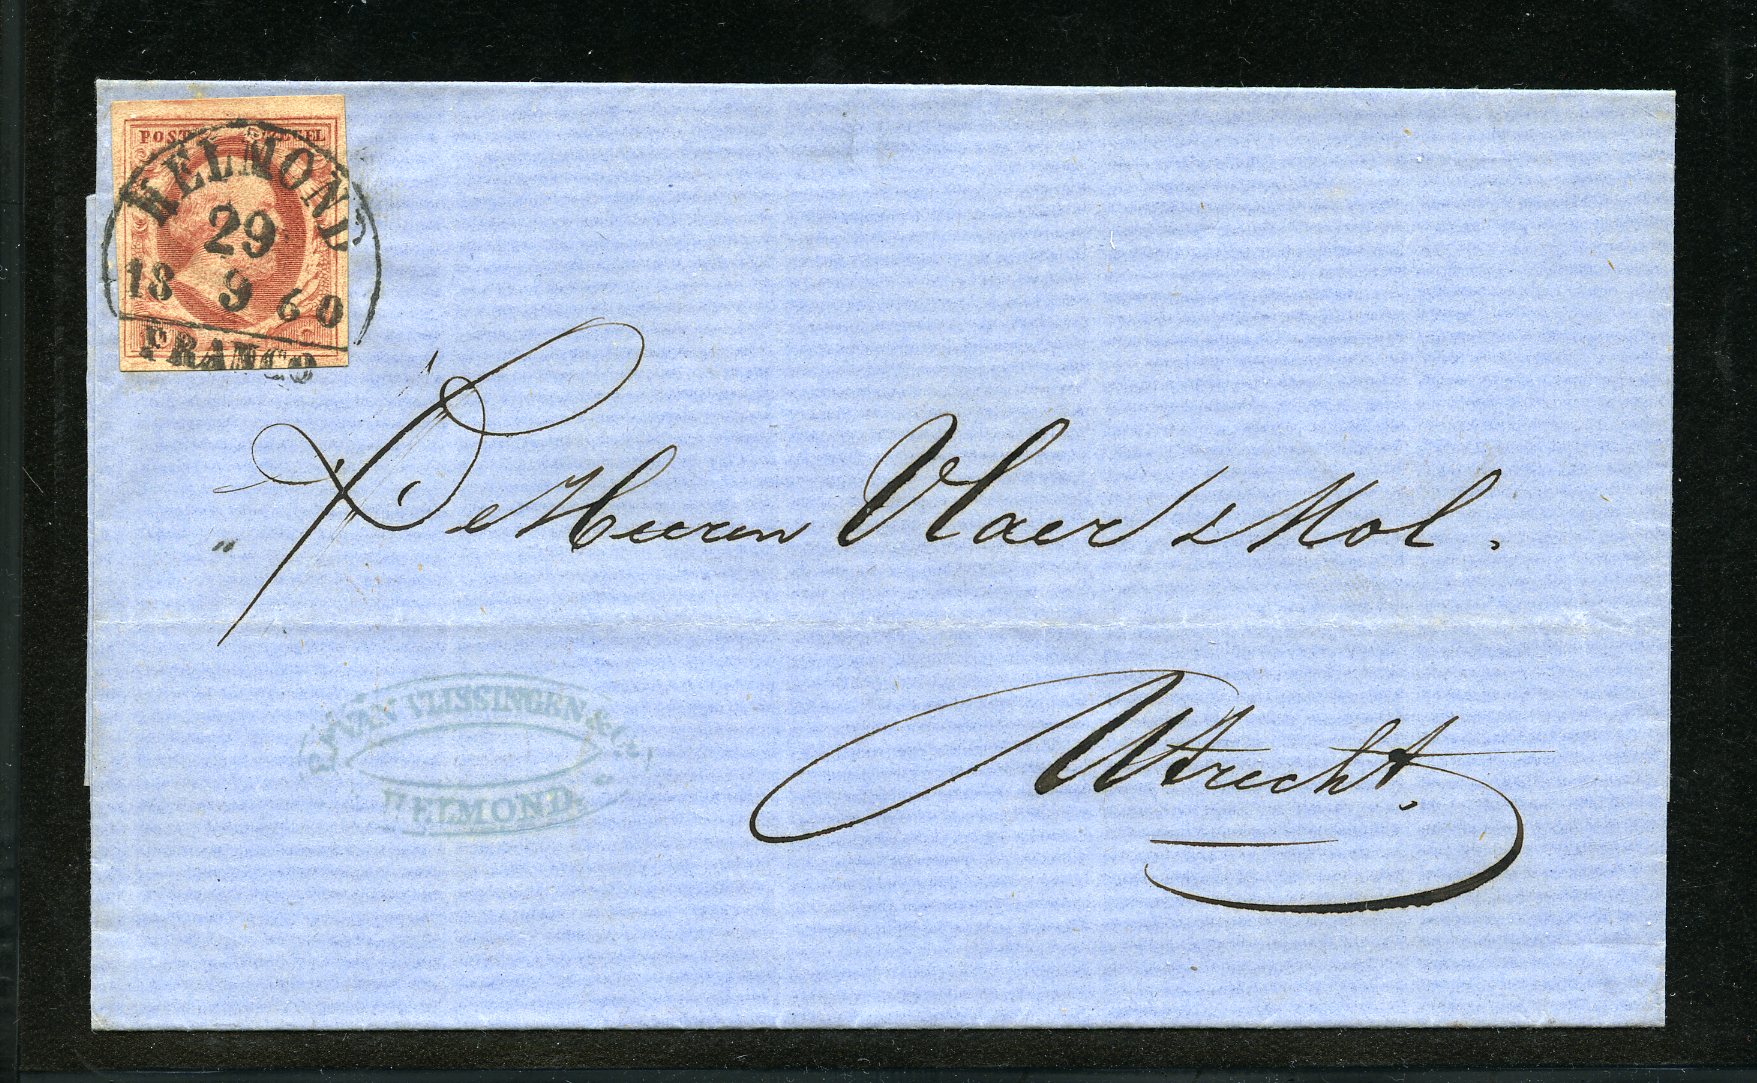 POSTZEGEL
HELMOND
29
18 9 60
FRANCO
De Heeren Vlaer & Mol.
Utrecht.
VAN VLISSINGEN & Co.
HELMOND.